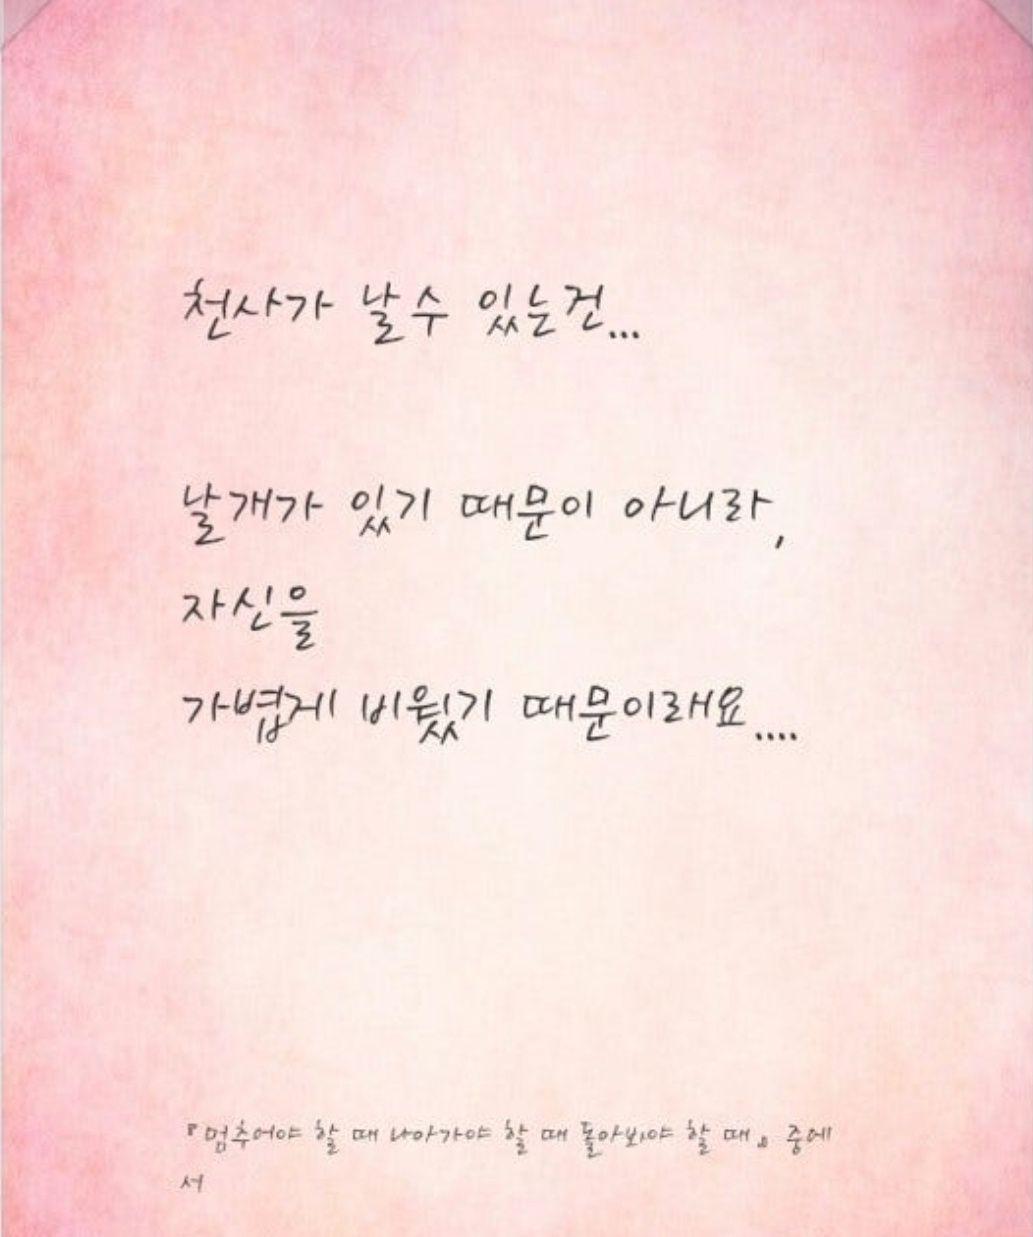 천사가 날수 있는건...
날개가 있기 때문이 아니라,
자신을
가볍게 비웠기 때문이래요....
『멈추어야 할 때 나아가야 할 때 돌아봐야 할 때』 중에
서